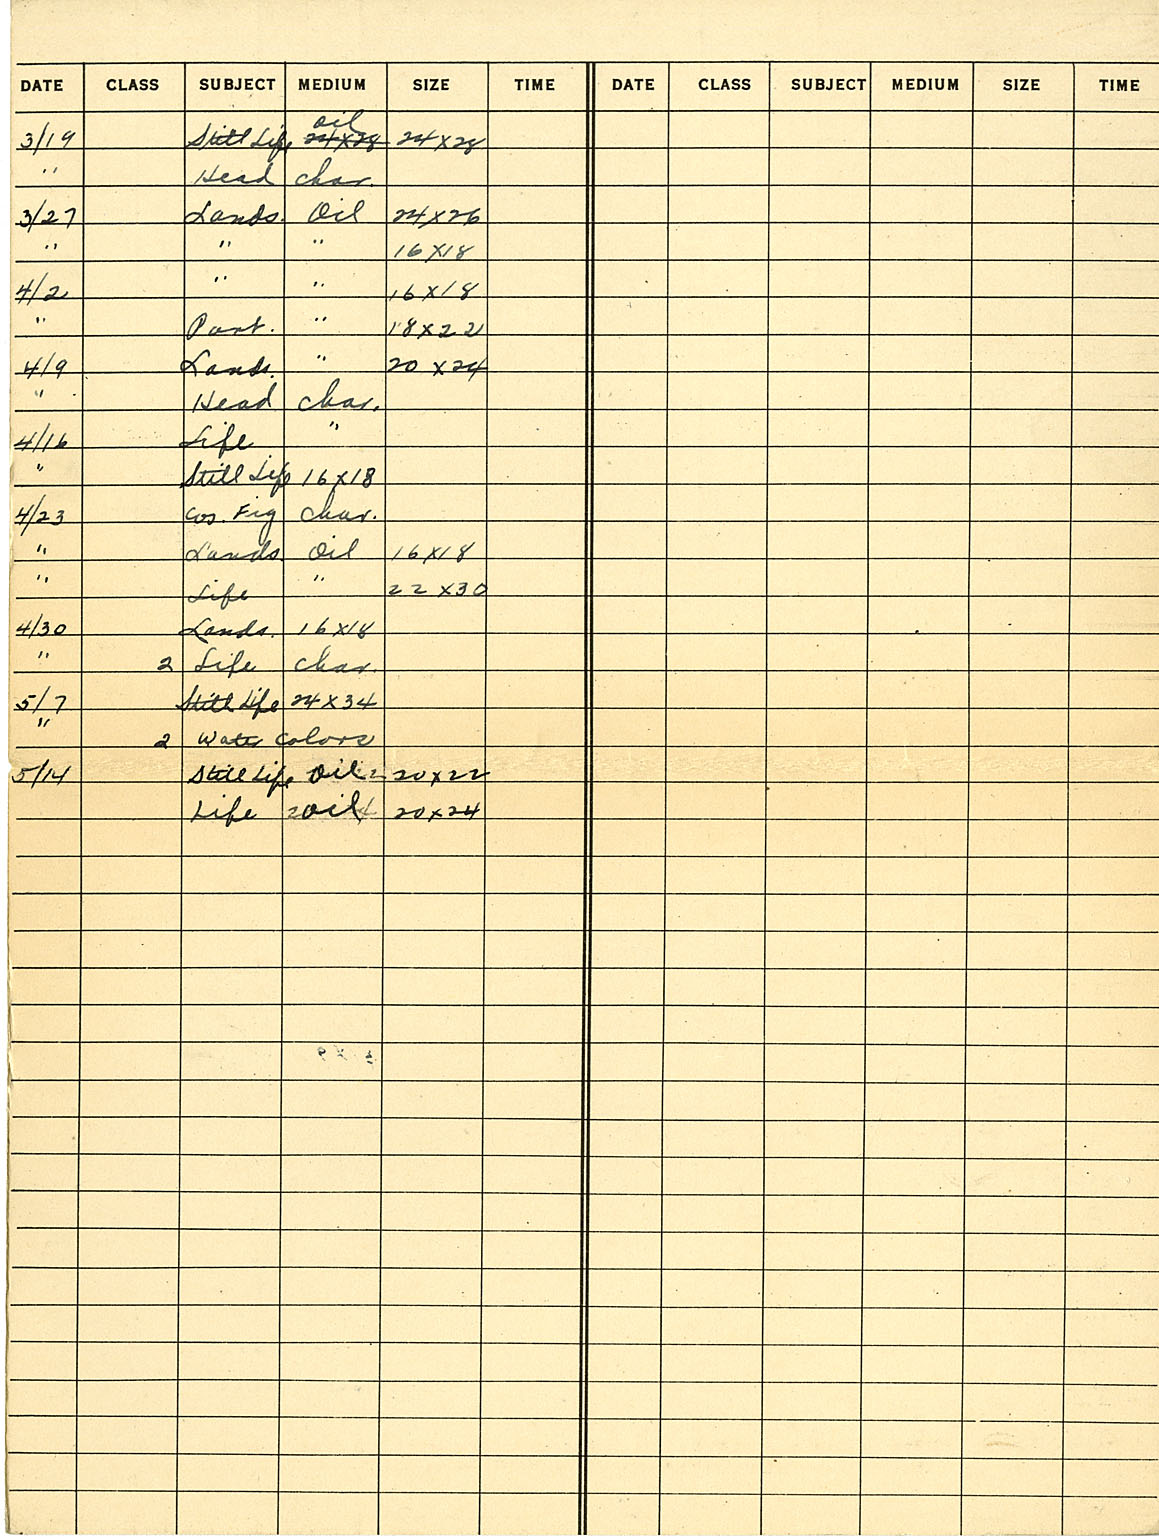 DATE CLASS SUBJECT MEDIUM SIZE TIME DATE CLASS SUBJECT MEDIUM SIZE TIME
oil
3/19 Still Life 24x28 24x28
" Head char.
3/27 Lands. Oil 24x26
" " " 16x18
4/2 " " 16x18
" Port. " 18x22
4/9 Lands. " 20x24
" Head char.
4/16 Life "
" Still Life 16x18
4/23 Cos. Fig char.
" Lands Oil 16x18
" Life " 22x30
4/30 Lands. 16x18
" 2 Life char.
5/7 Still Life 24x34
" 2 Water colors
5/14 Still Life Oil 20x22
Life oil 20x24